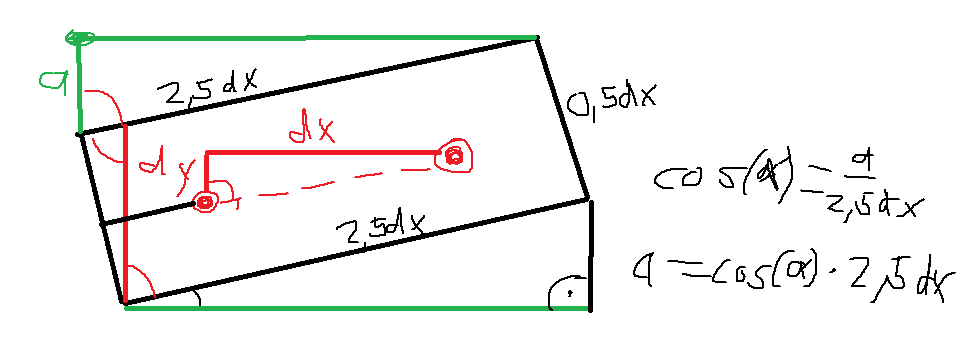 a
2,5dx
0,5dx
dx
dy
2,5dx
cos(α)=a/2,5dx
a=cos(α)·2,5dx